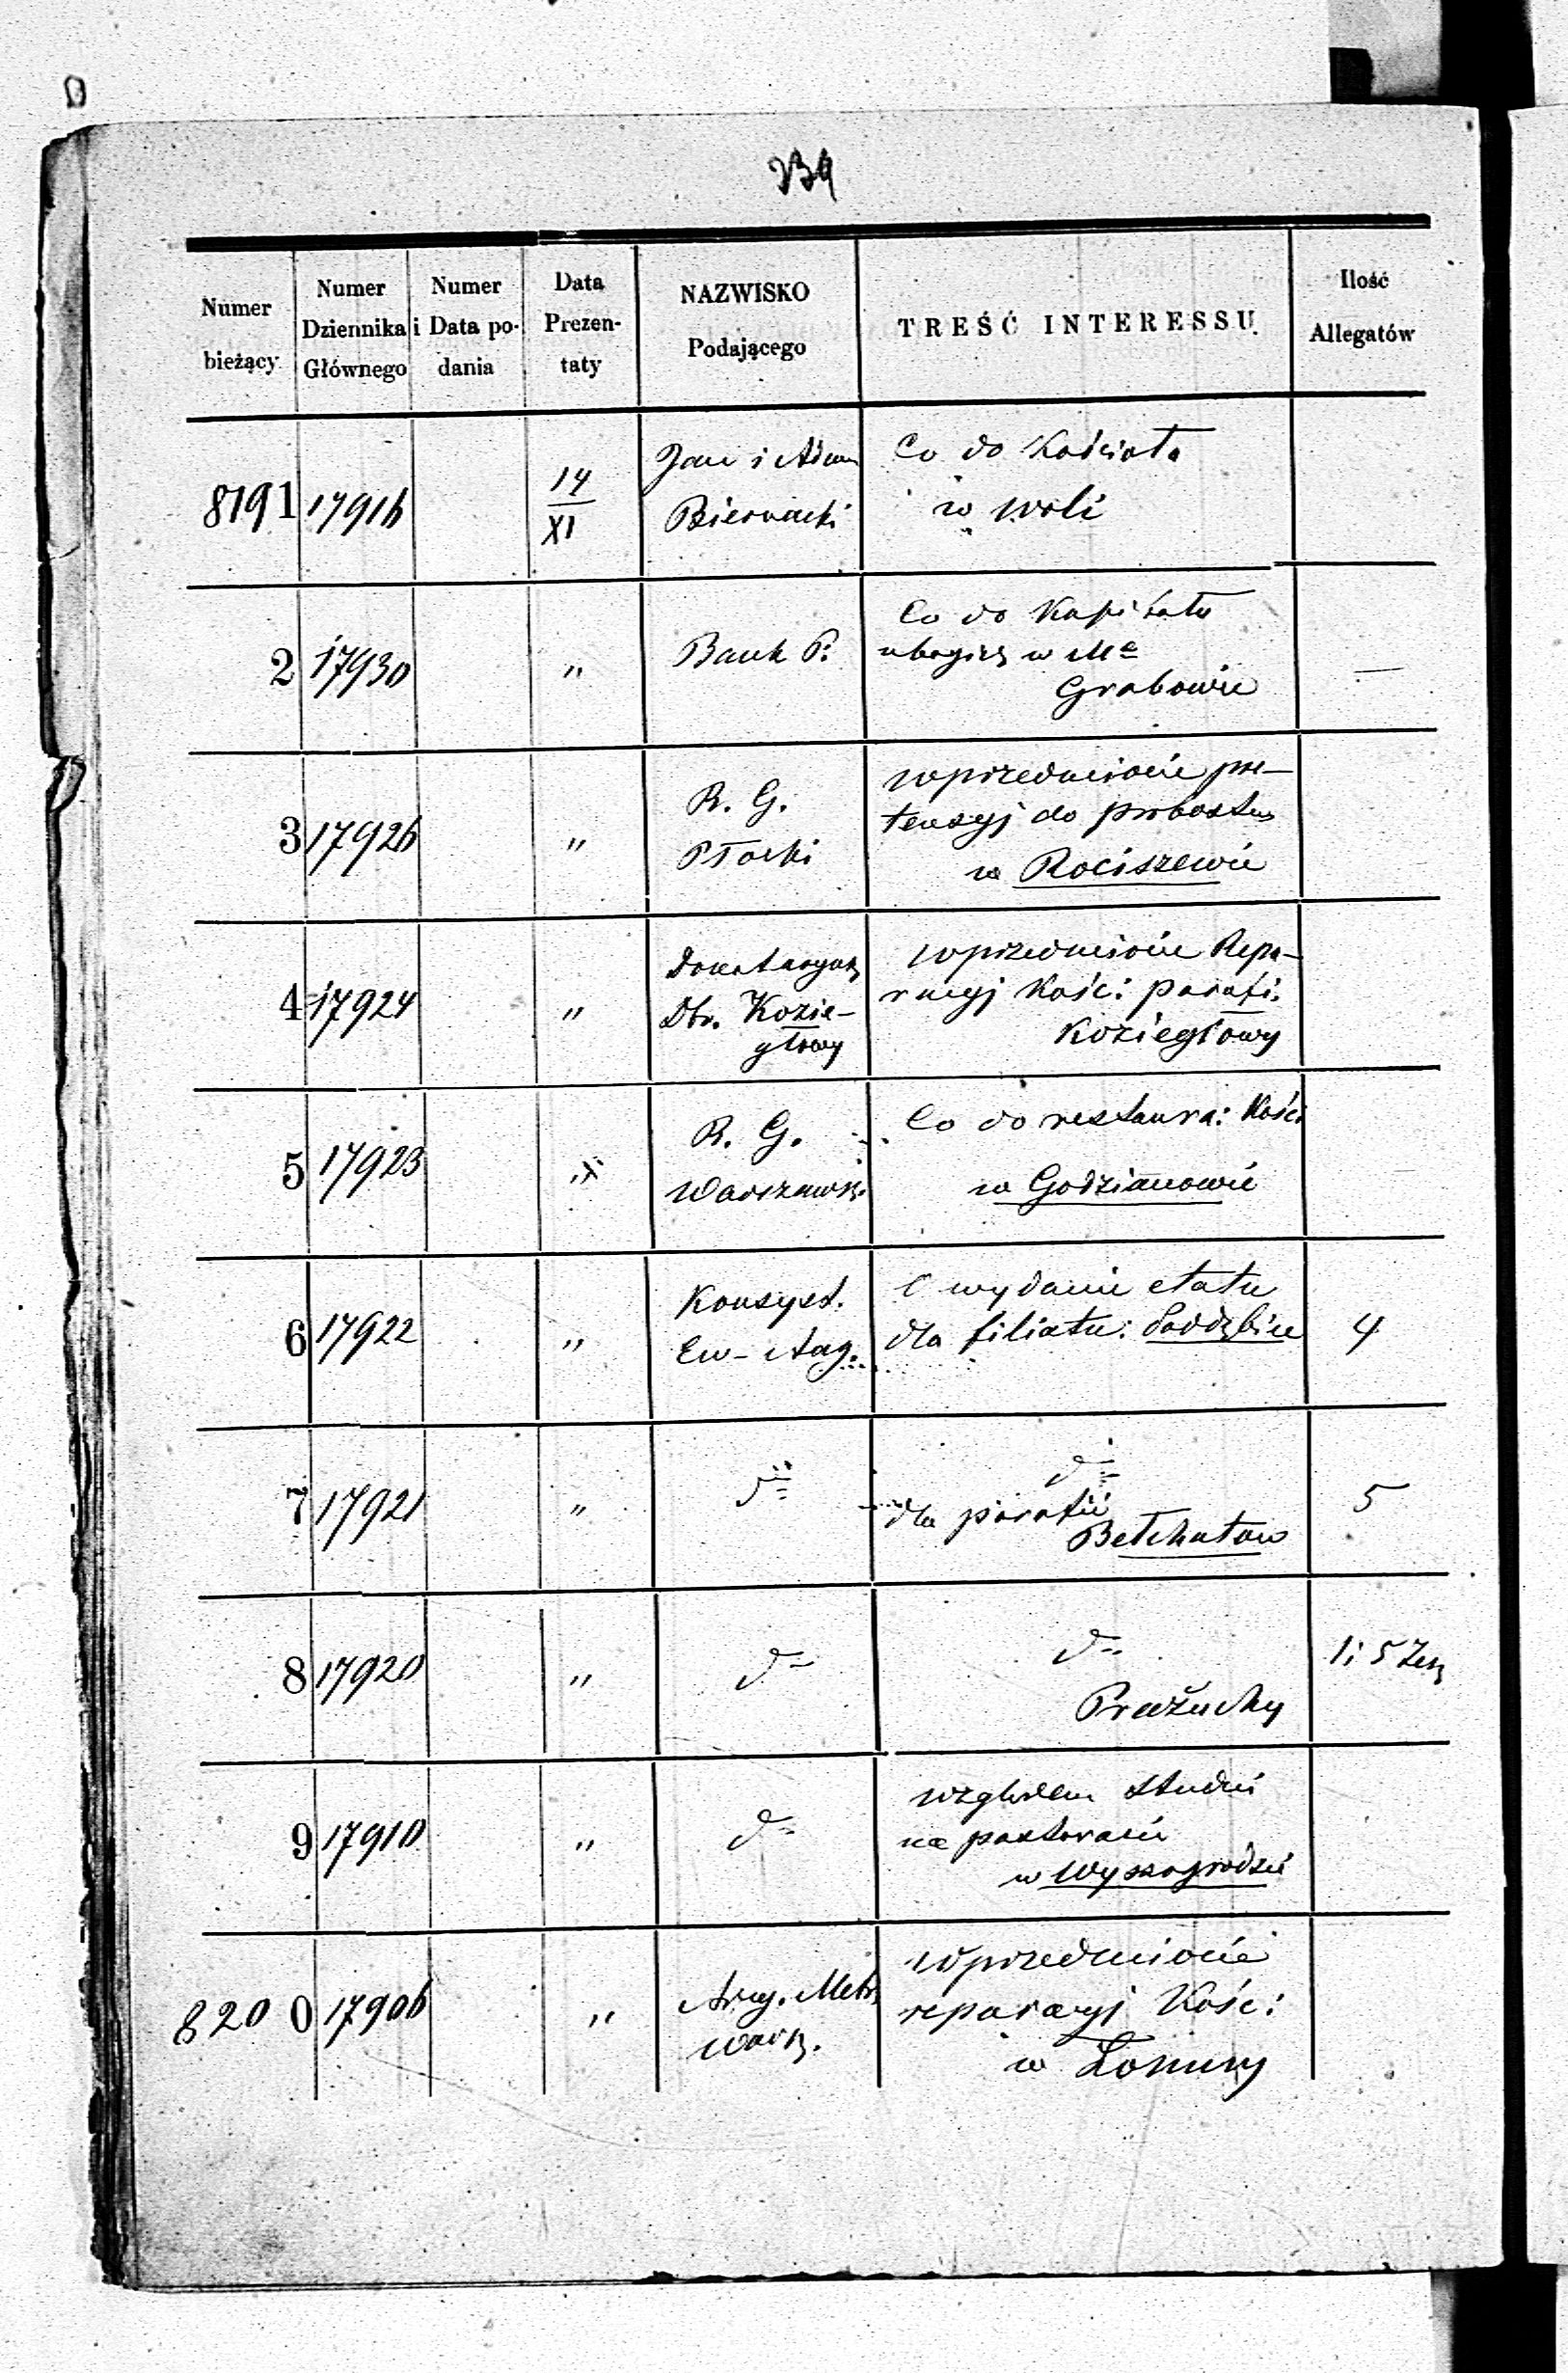 239
Numer bieżący | Numer Dziennika Głównego | Numer i Data podania | Data Prezentaty | NAZWISKO Podającego | TREŚĆ INTERESSU. | Ilość Allegatów
8191 17916 14/XI
Jan i Adam
Biernacki
Co do Kościoła
w Woli
2 17930 "
Bank P.
Co do Kapitału
ubogich w Me
Grabowie
—
3 17926 "
R. G.
Płocki
w przedmiocie pre-
tensyj do probostwa
w Rociszewie
4 17924 "
Donataryusz
Dbr. Kozie-
głowy
w przedmiocie Repa-
racyj Kośc: parafi.
Koziegłowy
5 17923 "
R. G.
Warszawsk.
Co do restaura: Kośc:
w Godzianowie
6 17922 "
Konsyst.
Ew- Aug.
O wydanie etatu
dla filiatu: Poddębice
4
7 17921 "
do
do
dla parafii
Bełchatow
5
8 17920 "
do
do
Prażuchy
1; 5 Zesz
9 17910 "
do
względem Studni
na pastoracie
w Wyszogrodzie
8200 17906 "
Arcy. Metr.
Warsz.
w przedmiocie
reparacyj Kośc:
w